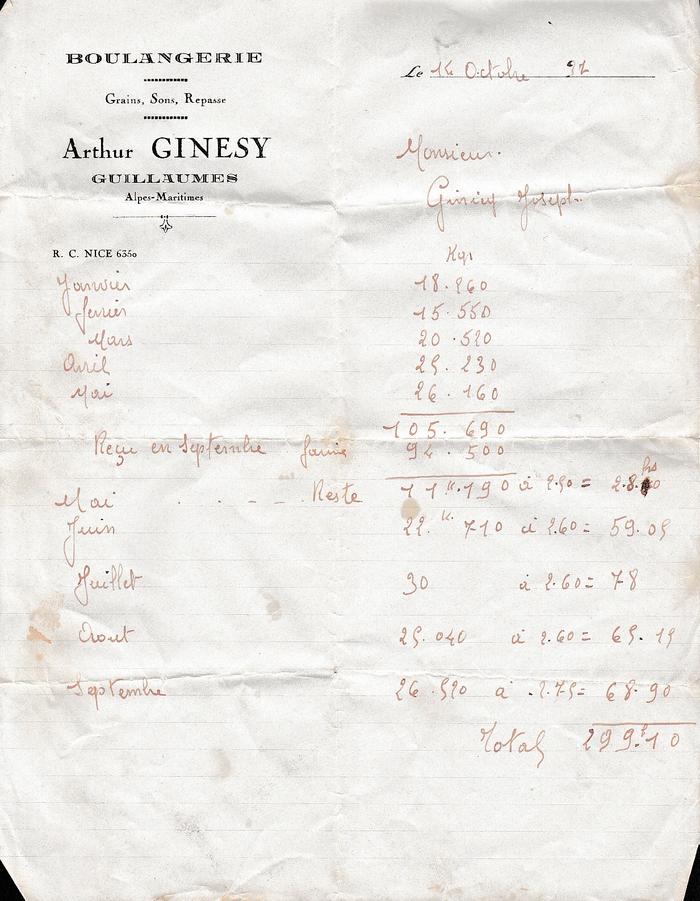 BOULANGERIE
Grains, Sons, Repasse
Arthur GINESY
GUILLAUMES
Alpes-Maritimes
R. C. NICE 6350
Le Octobre
Monsieur.
Joseph.
Kgs
Janvier 18.260
février 15.550
Mars 20.520
Avril 25.230
Mai 26.160
105.690
Reçu en Septembre farine 94.500
Mai . . - - Reste 11K.190 à 2.50 =
Juin 22.K.710 à 2.60 = 59.05
Juillet 30 à 2.60 = 78
Aout 25.040 à 2.60 = 65.15
Septembre 26.520 à 2.75 = 68.90
Total 299.f10